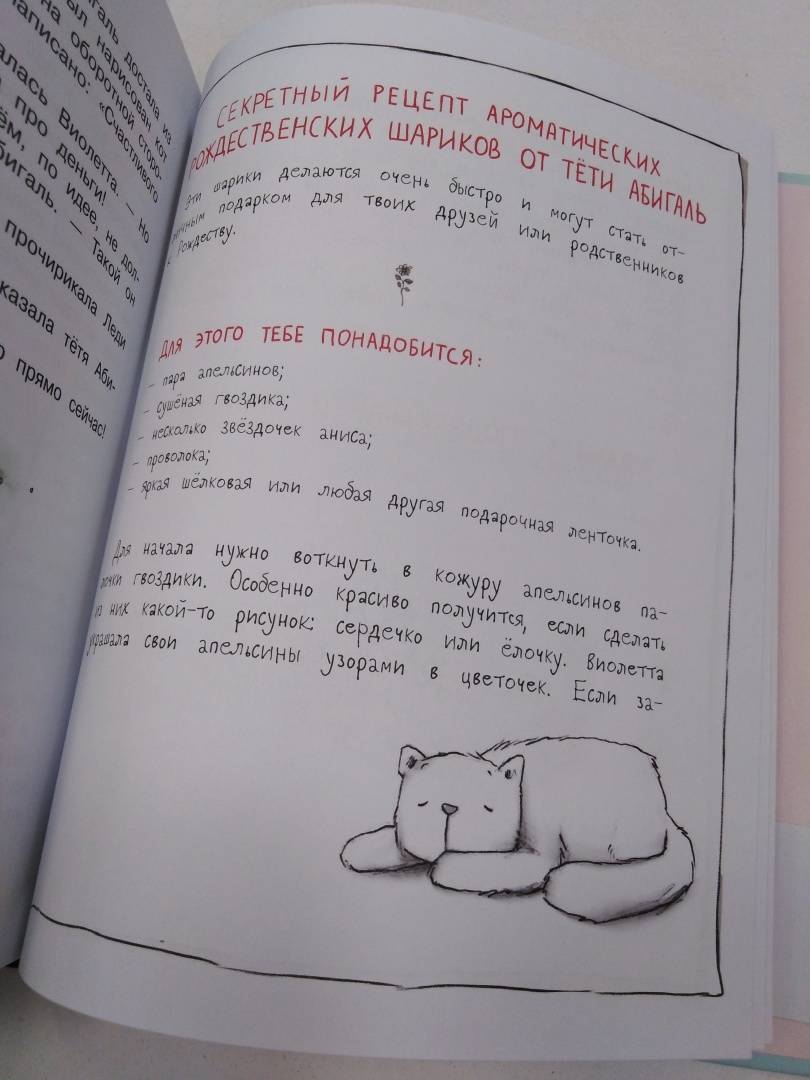 игаль достала из
ыл нарисован кот
на оборотной сторо-
написано: «Счастливого
алась Виолетта. — Но
про деньги!
ём, по идее, не дол-
бигаль. — Такой он
прочирикала Леди
казала тётя Аби-
прямо сейчас!
СЕКРЕТНЫЙ РЕЦЕПТ АРОМАТИЧЕСКИХ
РОЖДЕСТВЕНСКИХ ШАРИКОВ ОТ ТЁТИ АБИГАЛЬ
Эти шарики делаются очень быстро и могут стать от-
личным подарком для твоих друзей или родственников
к Рождеству.
ДЛЯ ЭТОГО ТЕБЕ ПОНАДОБИТСЯ:
- пара апельсинов;
- сушёная гвоздика;
- несколько звёздочек аниса;
- проволока;
- яркая шёлковая или любая другая подарочная ленточка.
Для начала нужно воткнуть в кожуру апельсинов па-
лочки гвоздики. Особенно красиво получится, если сделать
из них какой-то рисунок: сердечко или ёлочку. Виолетта
украшала свои апельсины узорами в цветочек. Если за-